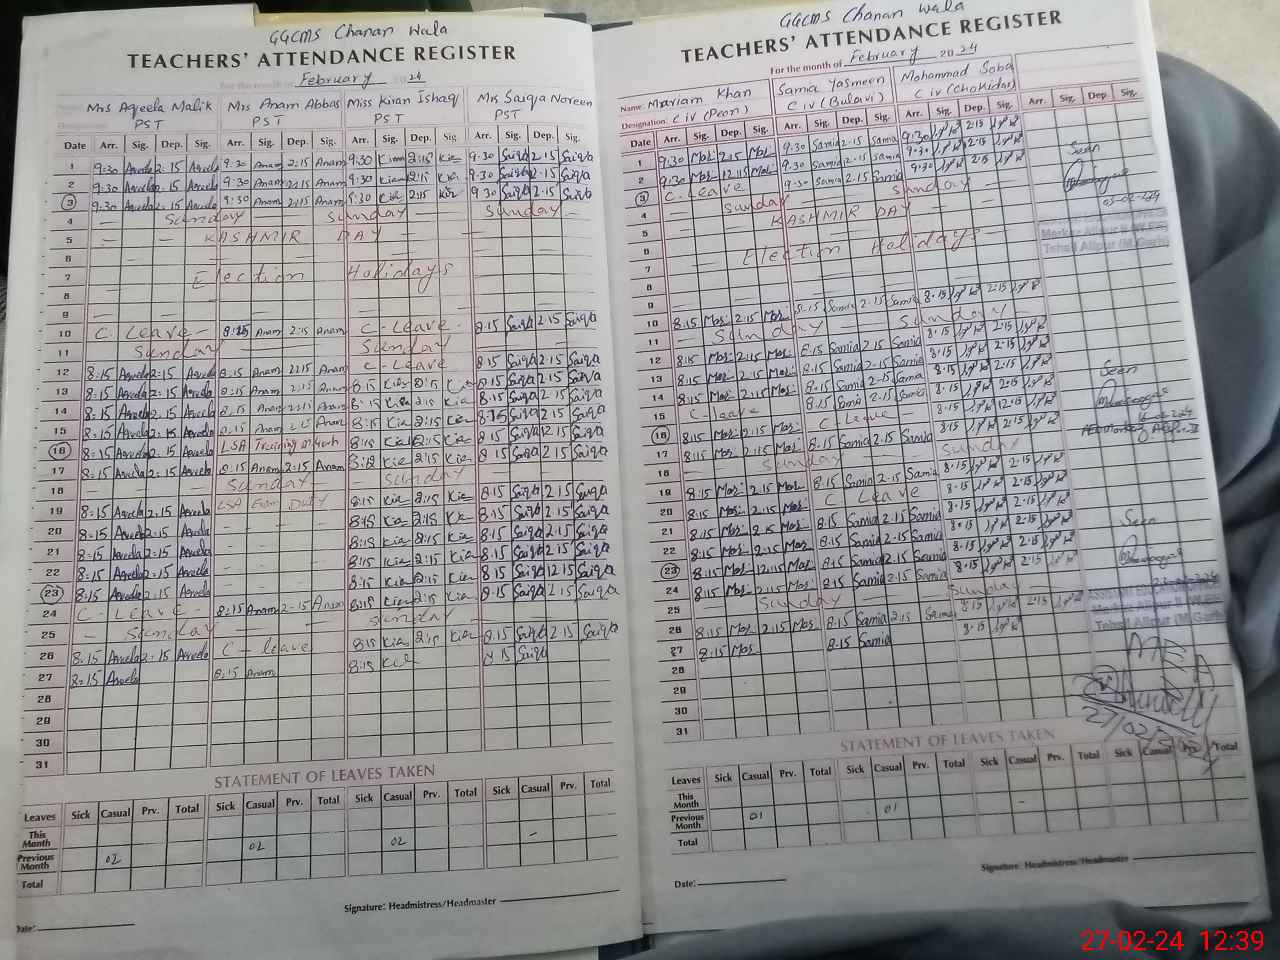 GGCMS Chanan Wala
TEACHERS' ATTENDANCE REGISTER
For the month of February 2024
Name: Mrs Aqeela Malik Mrs Anam Abbas Miss Kiran Ishaq Mrs Saiqa Noreen
Designation: PST PST PST PST
Date Arr. Sig. Dep. Sig. Arr. Sig. Dep. Sig. Arr. Sig. Dep. Sig. Arr. Sig. Dep. Sig.
1 9:30 Aqeela 2:15 Aqeela 9:30 Anam 2:15 Anam 9:30 Kiran 2:15 Kir 9:30 Saiqa 2:15 Saiqa
2 9:30 Aqeela 2:15 Aqeela 9:30 Anam 2:15 Anam 9:30 Kiran 2:15 Kir 9:30 Saiqa 2:15 Saiqa
3 9:30 Aqeela 2:15 Aqeela 9:30 Anam 2:15 Anam 9:30 Kir 2:15 Kir 9:30 Saiqa 2:15 Saiqa
4 Sunday Sunday Sunday
5 KASHMIR DAY
6
7 Election Holidays
8
9
10 C. Leave 8:15 Anam 2:15 Anam C-Leave 8:15 Saiqa 2:15 Saiqa
11 Sunday Sunday
12 8:15 Aqeela 2:15 Aqeela 8:15 Anam 2:15 Anam C-Leave 8:15 Saiqa 2:15 Saiqa
13 8:15 Aqeela 2:15 Aqeela 8:15 Anam 2:15 Anam 8:15 Kir 2:15 Kir 8:15 Saiqa 2:15 Saiqa
14 8:15 Aqeela 2:15 Aqeela 8:15 Anam 2:15 Anam 8:15 Kir 2:15 Kir 8:15 Saiqa 2:15 Saiqa
15 8:15 Aqeela 2:15 Aqeela 8:15 Anam 2:15 Anam 8:15 Kir 2:15 Kir 8:15 Saiqa 2:15 Saiqa
16 8:15 Aqeela 2:15 Aqeela LSA Training 8:15 Kir 2:15 Kir 8:15 Saiqa 2:15 Saiqa
17 8:15 Aqeela 2:15 Aqeela 8:15 Anam 2:15 Anam 8:15 Kir 2:15 Kir 8:15 Saiqa 2:15 Saiqa
18 Sunday Sunday
19 8:15 Aqeela 2:15 Aqeela LSA Exam Duty 8:15 Kir 2:15 Kir 8:15 Saiqa 2:15 Saiqa
20 8:15 Aqeela 2:15 Aqeela 8:15 Kir 2:15 Kir 8:15 Saiqa 2:15 Saiqa
21 8:15 Aqeela 2:15 Aqeela 8:15 Kir 2:15 Kir 8:15 Saiqa 2:15 Saiqa
22 8:15 Aqeela 2:15 Aqeela 8:15 Kir 2:15 Kir 8:15 Saiqa 2:15 Saiqa
23 8:15 Aqeela 2:15 Aqeela 8:15 Kir 2:15 Kir 8:15 Saiqa 2:15 Saiqa
24 C-Leave 8:15 Anam 2:15 Anam 8:15 Kir 2:15 Kir 8:15 Saiqa 2:15 Saiqa
25 Sunday Sunday
26 8:15 Aqeela 2:15 Aqeela C-leave 8:15 Kir 2:15 Kir 8:15 Saiqa 2:15 Saiqa
27 8:15 Aqeela 8:15 Anam 8:15 Kir 8:15 Saiqa
28
29
30
31
STATEMENT OF LEAVES TAKEN
Leaves Sick Casual Prv. Total Sick Casual Prv. Total Sick Casual Prv. Total Sick Casual Prv. Total
This Month 02 02 -
Previous Month 02
Total
Signature: Headmistress/Headmaster
Date:
GGCMS Chanan Wala
TEACHERS' ATTENDANCE REGISTER
For the month of February 2024
Name: Mariam Khan Samia Yasmeen Mohammad Soba
Designation: C iv (Peon) C iv (Bulavi) C iv (Chokidar)
Date Arr. Sig. Dep. Sig. Arr. Sig. Dep. Sig. Arr. Sig. Dep. Sig. Arr. Sig. Dep. Sig.
1 9:30 Mar 2:15 Mar 9:30 Samia 2:15 Samia 9:30 2:15
2 9:30 Mar 2:15 Mar 9:30 Samia 2:15 Samia 9:30 2:15 Seen
3 C. Leave 9:30 Samia 2:15 Samia 9:30 2:15
4 Sunday Sunday 03-02-2024
5 KASHMIR DAY
6 Election Holidays Tehsil Alipur (M.Garh)
7
8
9
10 8:15 Mar 2:15 Mar 8:15 Samia 2:15 Samia 8:15 2:15
11 Sunday Sunday
12 8:15 Mar 2:15 Mar 8:15 Samia 2:15 Samia 8:15 2:15
13 8:15 Mar 2:15 Mar 8:15 Samia 2:15 Samia 8:15 2:15
14 8:15 Mar 2:15 Mar 8:15 Samia 2:15 Samia 8:15 2:15 Seen
15 C-leave 8:15 Samia 2:15 Samia 8:15 2:15
16 8:15 Mar 2:15 Mar C-Leave 8:15 2:15
17 8:15 Mar 2:15 Mar 8:15 Samia 2:15 Samia 8:15 2:15
18 Sunday Sunday
19 8:15 Mar 2:15 Mar 8:15 Samia 2:15 Samia 8:15 2:15
20 8:15 Mar 2:15 Mar C Leave 8:15 2:15
21 8:15 Mar 2:15 Mar 8:15 Samia 2:15 Samia 8:15 2:15 Seen
22 8:15 Mar 2:15 Mar 8:15 Samia 2:15 Samia 8:15 2:15
23 8:15 Mar 2:15 Mar 8:15 Samia 2:15 Samia 8:15 2:15
24 8:15 Mar 2:15 Mar 8:15 Samia 2:15 Samia 8:15 2:15
25 Sunday Sunday
26 8:15 Mar 2:15 Mar 8:15 Samia 2:15 Samia 8:15 2:15 Tehsil Alipur (M.Garh)
27 8:15 Mar 8:15 Samia 8:15
28 MEA
29
30
31 27/02/24
STATEMENT OF LEAVES TAKEN
Leaves Sick Casual Prv. Total Sick Casual Prv. Total Sick Casual Prv. Total Sick Casual Prv. Total
This Month -
Previous Month 01 01
Total
Signature: Headmistress/Headmaster
Date:
27-02-24 12:39